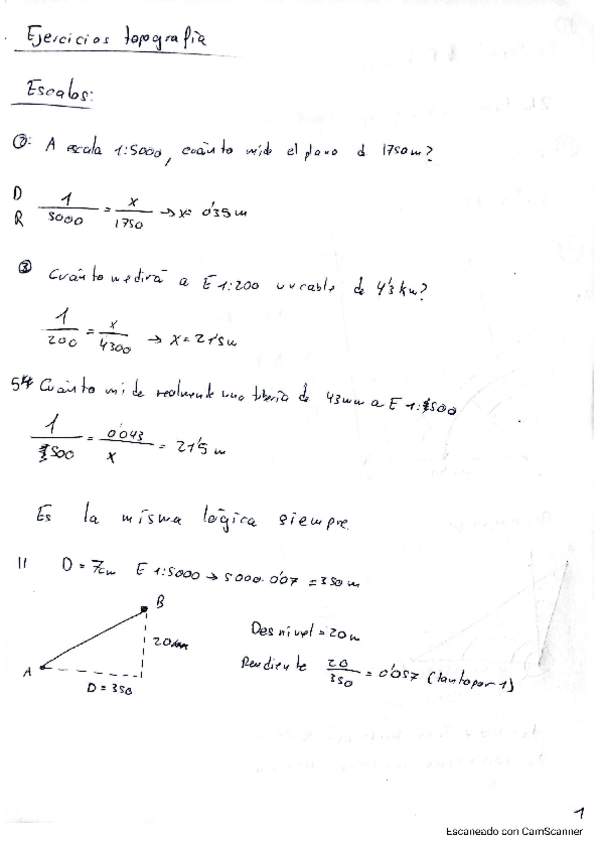 Ejercicios topografía
Escalas:
②: A escala 1:5000, cuánto mide el plano d 1750m?
D
R
1/5000 = x/1750 → x= 0'35m
③ Cuánto medirá a E 1:200 un cable de 4'3km?
1/200 = x/4300 → x= 21'5m
5 Cuánto mide realmente una tubería de 43mm a E 1:500
1/500 = 0'043/x = 21'5 m
Es la misma lógica siempre.
11 D = 7cm E 1:5000 → 5000·0'07 = 350m
B
20m
A
D = 350
Desnivel = 20m
Pendiente 20/350 = 0'057 (tanto por 1)
1
Escaneado con CamScanner